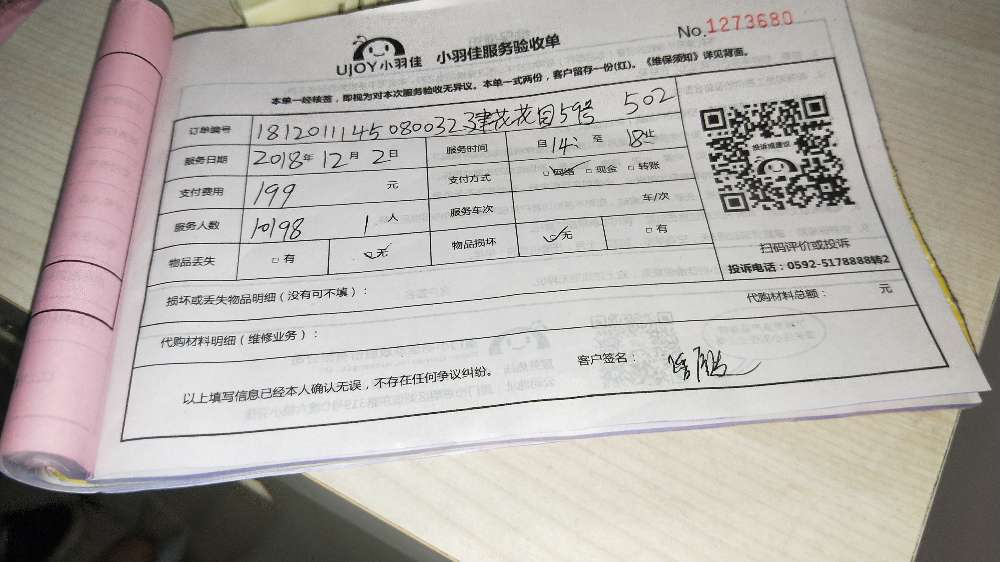 UJOY小羽佳 小羽佳服务验收单 No.1273680
本单一经核签，即视为对本次服务验收无异议。本单一式两份，客户留存一份(红)。《维保须知》详见背面。
订单编号 181201114508003 59号 502
服务日期 2018年12月2日 服务时间 自14: 至18:止
支付费用 199 元 支付方式 网络 现金 转账
服务人数 10198 1人 服务车次 车/次
物品丢失 有 无 物品损坏 无 有
投诉或建议
扫码评价或投诉
投诉电话：0592-5178888转2
损坏或丢失物品明细（没有可不填）：
代购材料明细（维修业务）： 代购材料总额： 元
以上填写信息已经本人确认无误，不存在任何争议纠纷。 客户签名：